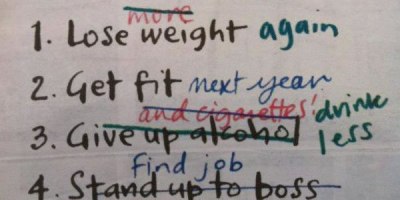 more
1. Lose weight again
2. Get fit next year
and cigarettes!
3. Give up alcohol drink less
find job
4. Stand up to boss